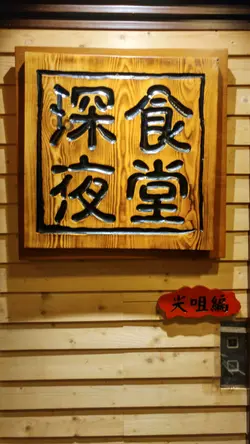 深夜
食堂
尖咀編